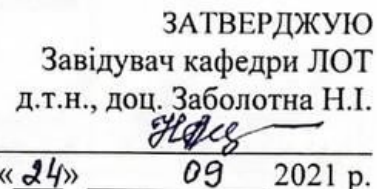 ЗАТВЕРДЖУЮ
Завідувач кафедри ЛОТ
д.т.н., доц. Заболотна Н.І.
«24» 09 2021 р.